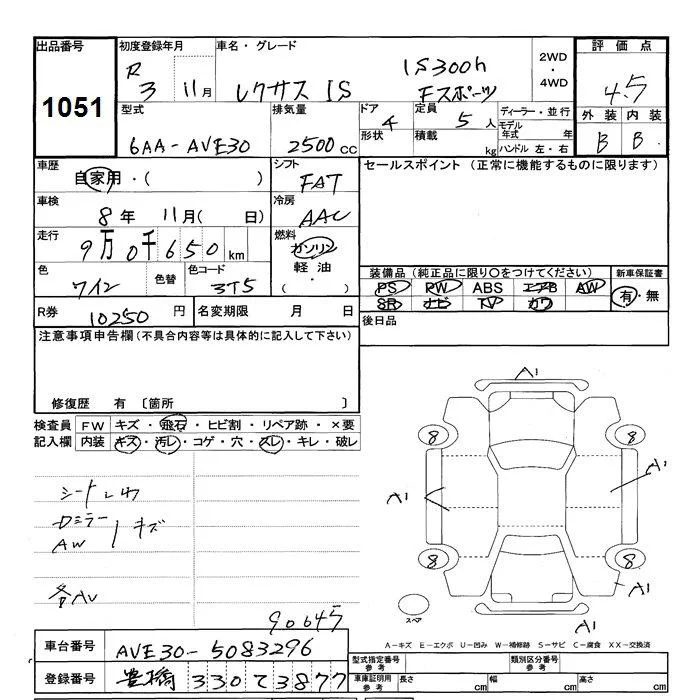 出品番号 初度登録年月 車名・グレード 2WD・4WD 評価点
1051 R3 11月 レクサス IS IS300h Fスポーツ 4.5
型式 排気量 ドア 4 定員 5人 ディーラー・並行 外装 内装
6AA-AVE30 2500cc 形状 積載 kg モデル年式 年 ハンドル 左・右 B B
車歴 自家用・( ) シフト FAT セールスポイント (正常に機能するものに限ります)
車検 8年 11月( 日) 冷房 AAC
走行 9万0千650km 燃料 ガソリン 軽油・( )
色 ワイン 色替 色コード 3T5
装備品(純正品に限り○をつけてください) 新車保証書
PS PW ABS エアB AW 有・無
SR ナビ TV カワ
R券 10250円 名変期限 月 日 後日品
注意事項申告欄(不具合内容等は具体的に記入して下さい)
修復歴 有 〔箇所 〕
検査員 FW キズ・飛石・ヒビ割・リペア跡・×要
記入欄 内装 キズ・汚レ・コゲ・穴・スレ・キレ・破レ
シートシワ
Dミラー
AW
キズ
各AU
90645
A1
8 8
A1 A1
8 8
A1
スペア
A1
A-キズ E-エクボ U-凹み W-補修跡 S-サビ C-腐食 XX-交換済
車台番号 AVE30-5083296
型式指定番号 参考 類別区分番号 参考
登録番号 豊橋 330 て 3877
車庫証明用 参考 長さ cm 幅 cm 高さ cm